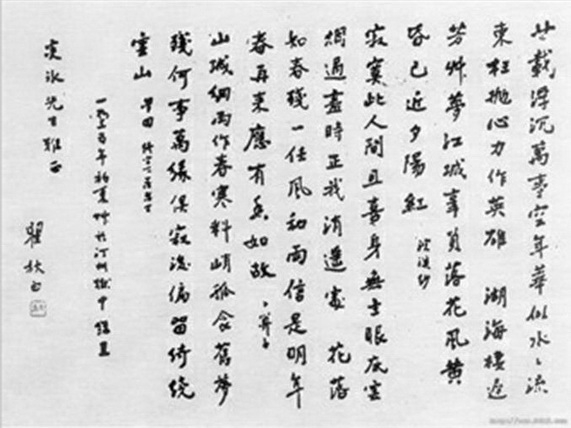 廿載浮沉萬事空年華似水水流
東枉抛心力作英雄 湖海棲遲
芳艸夢江城辜負落花風黄
昏已近夕陽紅 浣溪沙
寂寞此人間且喜身無主眼底雲
烟過盡時正我逍遥處 花落
知春殘一任風和雨信是明年
春再來應有香如故 卜算子
山城細雨作春寒料峭孤衾舊夢
殘何事萬緣俱寂後偏留綺繞
雲山
一九三五年初夏艸於汀州獄中録呈
先生雅正
瞿秋白